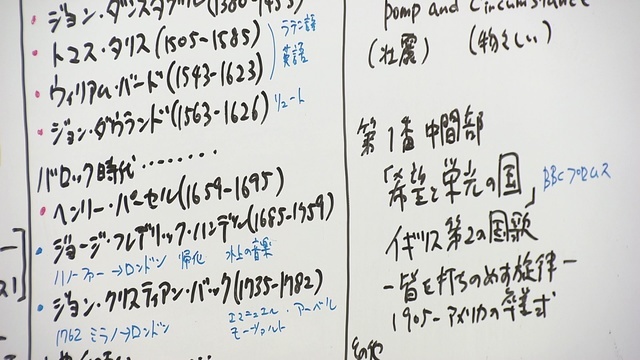 ジョン・ダンスタブル(1380-1453)
・トマス・タリス(1505-1585)
ラテン語
英語
・ウィリアム・バード(1543-1623)
・ジョン・ダウランド(1563-1626)
リュート
バロック時代・・・・・・・・
・ヘンリー・パーセル(1659-1695)
・ジョージ・フレデリック・ハンデル(1685-1759)
ハノーファー→ロンドン 帰化 水上の音楽
・ジョン・クリスティアン・バック(1735-1782)
1762 ミラノ→ロンドン
エマニュエル・アーベル
モーツァルト
pomp and Circumstance
(壮麗) (物々しい)
第1番 中間部
「希望と栄光の国」
BBCプロムス
イギリス第2の国歌
-皆を打ちのめす旋律-
1905-アメリカの卒業式
その他